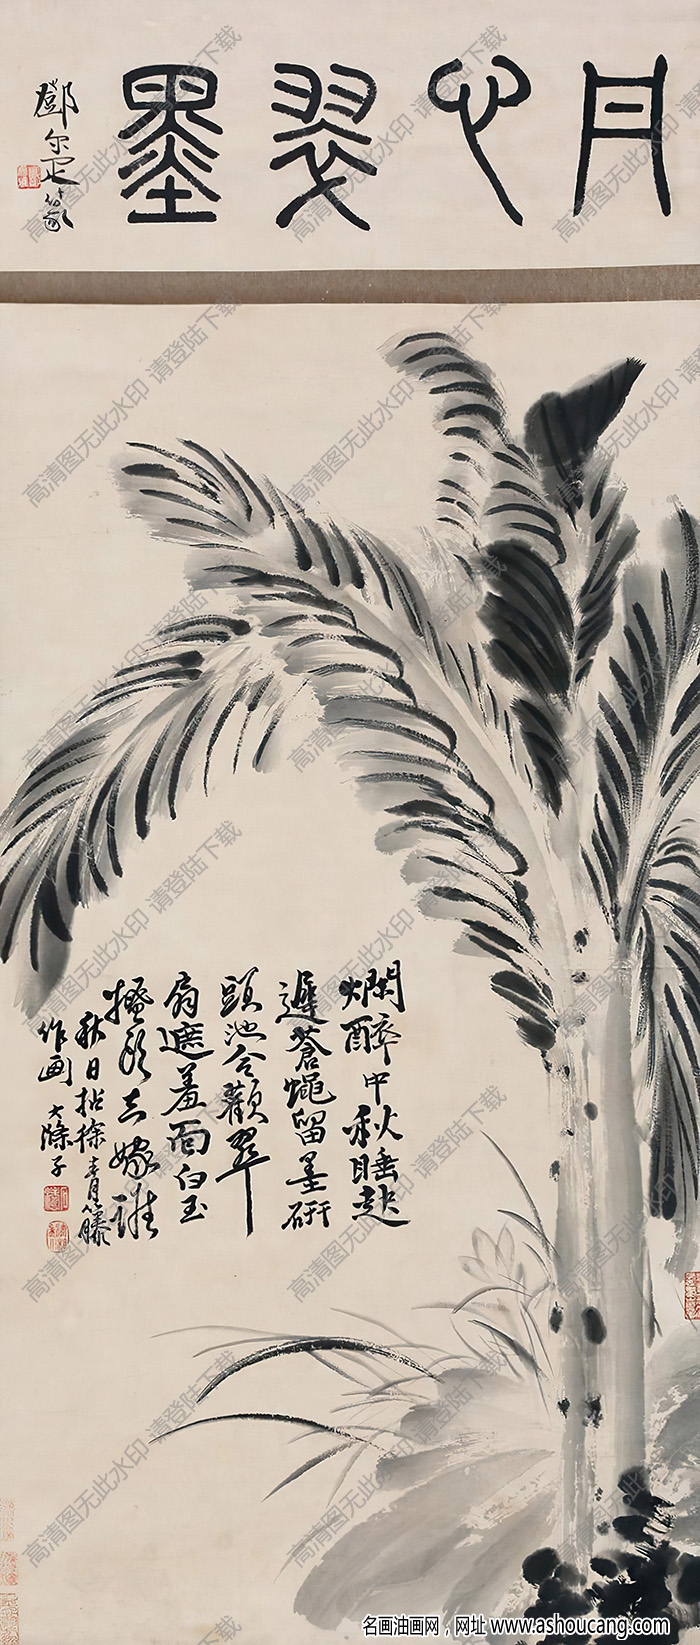 翠墨
鄧尔疋篆
爛醉中秋睡起
遲蒼蠅留墨研
頭池合歡翠
扇遮羞面白玉
搔頭去嫁誰
秋日拈徐青藤
作画 大滌子
高清图无此水印 请登陆下载
名画油画网，网址 www.ashoucang.com